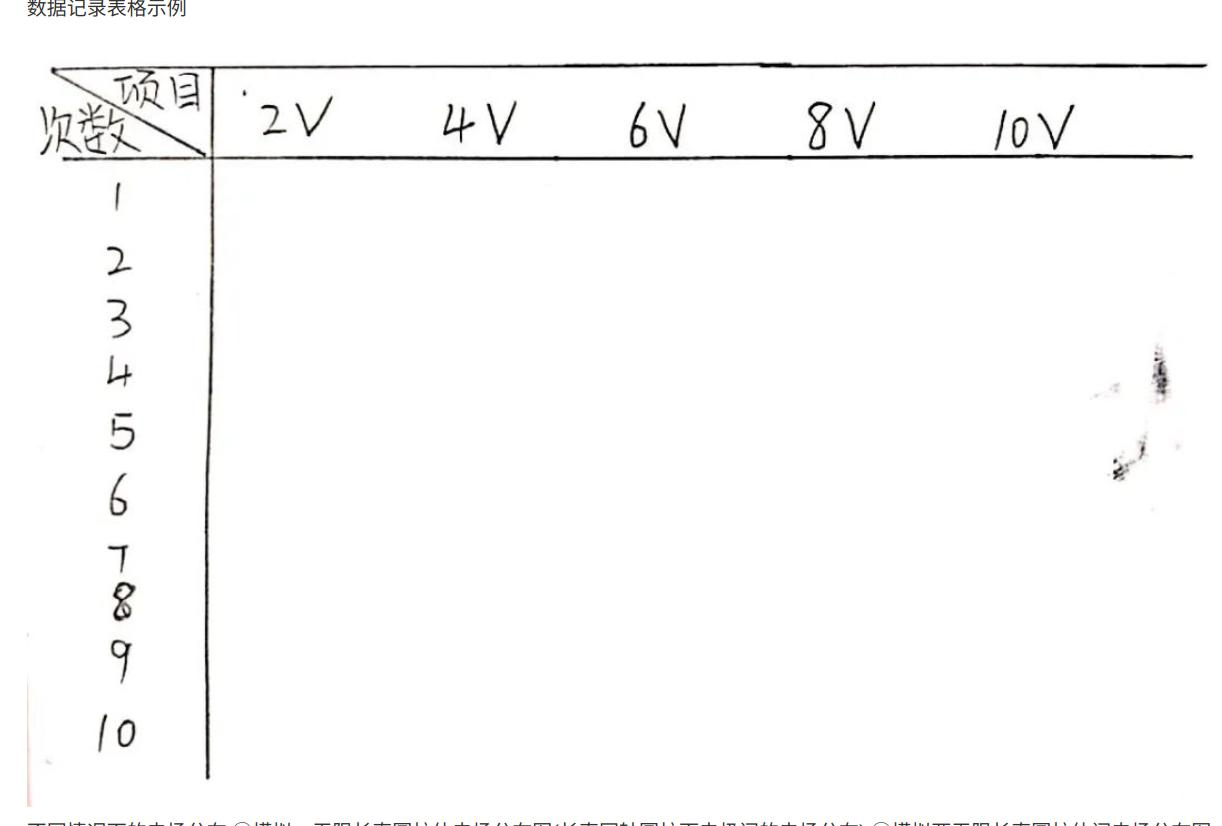 数据记录表格示例
项目
次数
2V 4V 6V 8V 10V
1
2
3
4
5
6
7
8
9
10